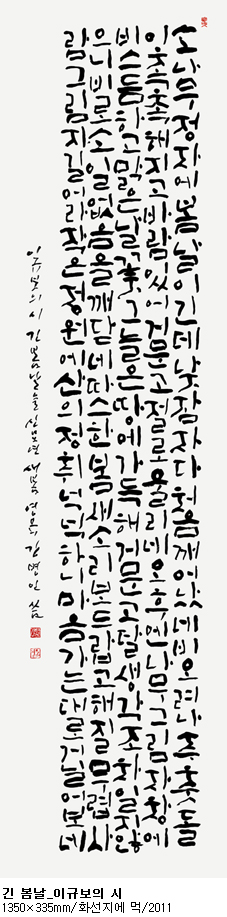 소나무 정자에 봄날이 긴데 낮잠 자다 처음 깨어났네 비 오려나 주춧돌
이 축축해지고 바람 있어 거문고 절로 울리네 오후엔 나무 그림자 창에
비스듬하고 맑은 날 꽃 그늘은 땅에 가득해 거문고 탈 생각조차 일지 않
으니 비로소 일 없음을 깨닫네 따스한 봄 새소리 부드럽고 해질 무렵 사
람 그림자 길어라 작은 정원에 산의 정취 넉넉하니 마음 가는 대로 거닐어 보네
이규보의 시 긴 봄날을 신묘년 새봄 강병인 씀
긴 봄날_이규보의 시
1350×335mm/화선지에 먹/2011